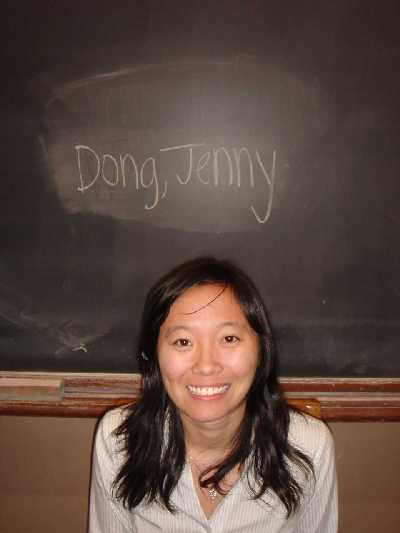 Dong, Jenny